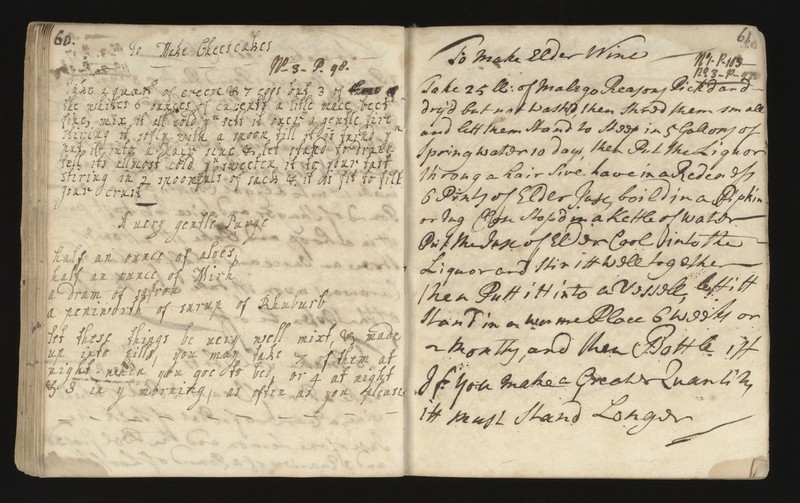 60.
To Make Cheescakes
No- 3- P. 98.
Take a quart of creeme & 7 eggs but 3 of
the whites 6 ounces of currents a little mace beet
fine, mix it all cold yn sett it over a gentle fire
stiring it softly with a spoon till it is
put it into a hair sive & let stand to draine
till its allmost cold yn sweeten it to your tast
stiring in 2 spoonfuls of sack & it is fit to fill
your crust
A very gentle Purge
half an ounce of aloes
half an ounce of Mirh
a dram of safron
a peniworth of surup of Rhuburb
let these things be very well mixt, & made
up into pills, you may take 3 of them at
night when you goe to bed, or 4 at night
& 3 in ye morning, as often as you please
61.
To Make Elder Wine
No 3- P-
Take 25 ll: of Malego Reasons Pickd and
dry'd but not washt, then Shred them small
and lett them Stand to Steep in 5 Gallons of
Spring water 10 days, then Put the Liquor
through a hair sive have in a Redeness
6 Pints of Elder Juse, boild in a Pipkin
or Jug Close Stop'd in a kettle of water
Put the Juse of Elder Cool into the
Liquor and Stir itt well togethe
Then Putt itt into a Vessell, lett itt
Stand in a warme Place 6 weeks or
2 months, and then Bottle itt
If you make a Greater Quantity
itt must Stand Longer